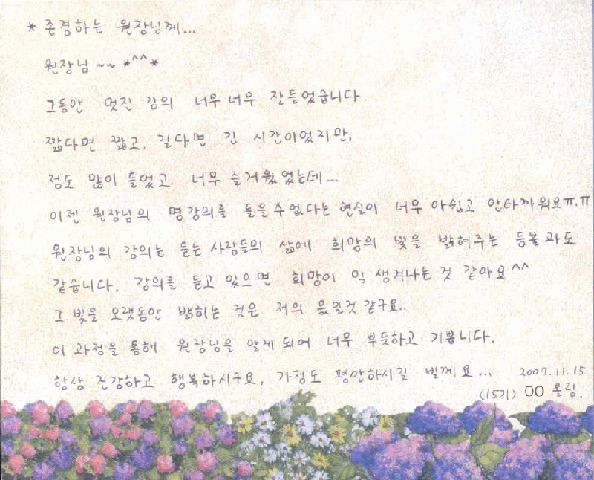 * 존경하는 원장님께...
원장님 ~~ *^^*
그동안 멋진 강의 너무너무 잘들었습니다
짧다면 짧고, 길다면 긴 시간이었지만,
정도 많이 들었고 너무 즐거웠었는데...
이젠 원장님의 명강의를 들을수없다는 현실이 너무 아쉽고 안타까워요ㅠ.ㅠ
원장님의 강의는 듣는 사람들의 삶에 희망의 빛을 밝혀주는 등불과도
같습니다. 강의를 듣고 있으면 희망이 막 생겨나는 것 같아요^^
그 빛을 오랫동안 밝히는 것은 저의 몫일것 같구요..
이 과정을 통해 원장님을 알게 되어 너무 뿌듯하고 기쁩니다.
항상 건강하고 행복하시구요, 가정도 평안하시길 빌께요... 2007.11.15
(15기) OO 올림.